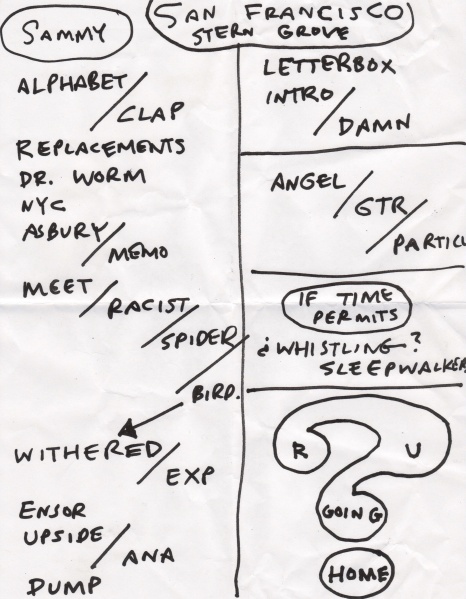 SAMMY
SAN FRANCISCO
STERN GROVE
ALPHABET/
CLAP
REPLACEMENTS
DR. WORM
NYC
ASBURY/
MEMO
MEET/
RACIST/
SPIDER/
BIRD.
WITHERED/
EXP
ENSOR
UPSIDE/
ANA
DUMP
LETTERBOX
INTRO/
DAMN
ANGEL/
GTR/
PARTICL
IF TIME
PERMITS
¿WHISTLING?
SLEEPWALKER
R U
GOING
HOME